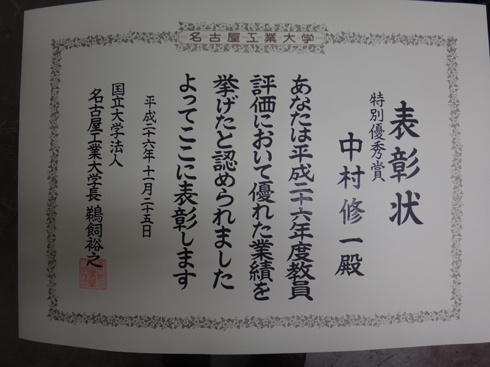 名古屋工業大学
表彰状
特別優秀賞
中村修一殿
あなたは平成二十六年度教員
評価において優れた業績を
挙げたと認められました
よってここに表彰します
平成二十六年十一月二十五日
国立大学法人
名古屋工業大学長 鵜飼裕之